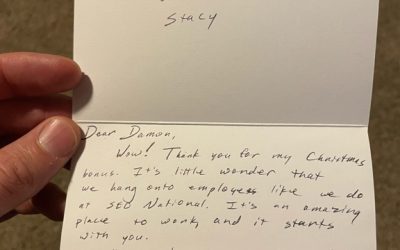 Stacy
Dear Damon,
Wow! Thank you for my Christmas
bonus. It's little wonder that
we hang onto employees like we do
at SEO National. It's an amazing
place to work, and it starts
with you.